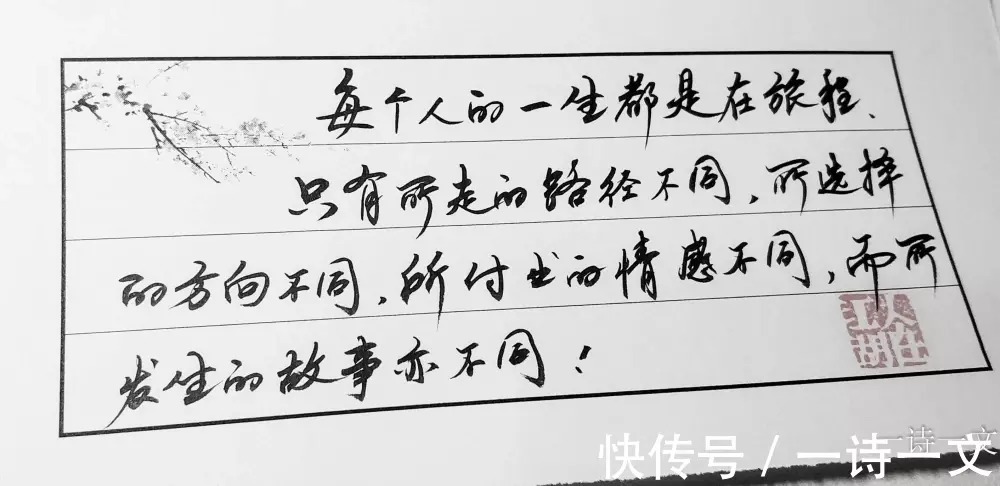 每个人的一生都是在旅程、
只有所走的路径不同,所选择
的方向不同,所付出的情感不同,而所
发生的故事亦不同!
一诗一文
快传号 / 一诗一文